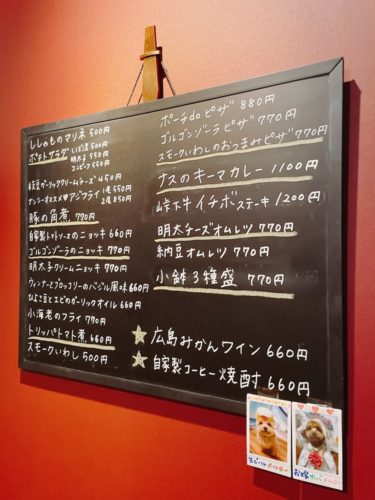 ししゃものマリネ 500円
ポテトサラダ いぶり漬 500円
明太子 550円
コンビーフ 550円
枝豆ガーリッククリームチーズ 450円
ナンシーオススメ♥アジフライ 1尾 550円
2尾 850円
豚の角煮 770円
自家製トマトソースのニョッキ 660円
ゴルゴンゾーラのニョッキ 770円
明太子クリームニョッキ 770円
ウィンナーとブロッコリーのバジル風味 660円
ひよこ豆とエビのガーリックオイル 660円
小海老のフライ 770円
トリッパトマト煮 660円
スモークいわし 500円
ポーチdoピザ 880円
ゴルゴンゾーラピザ 770円
スモークいわしのおつまみピザ 770円
ナスのキーマカレー 1100円
峠下牛イチボステーキ 1200円
明太チーズオムレツ 770円
納豆オムレツ 770円
小鉢3種盛 770円
★広島みかんワイン 660円
★自家製コーヒー焼酎 660円